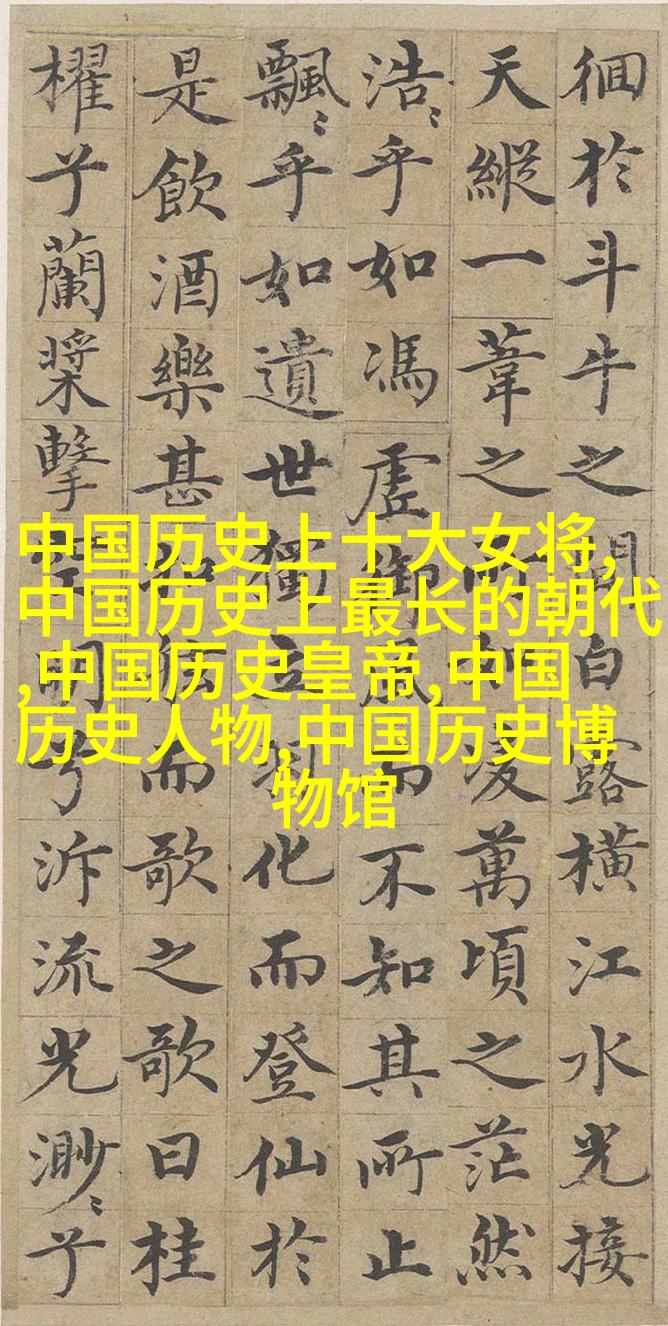 徊於斗牛之間白露橫江水光接
天縱一葦之所如凌萬頃之茫然
浩〻乎如馮虛御風而不知其所止
飄〻乎如遺世獨立羽化而登仙於
是飲酒樂甚扣舷而歌之歌曰桂
櫂兮蘭槳擊空明兮泝流光渺〻兮
中国历史上十大女将,
中国历史上最长的朝代
,中国历史皇帝,中国
历史人物,中国历史博
物馆